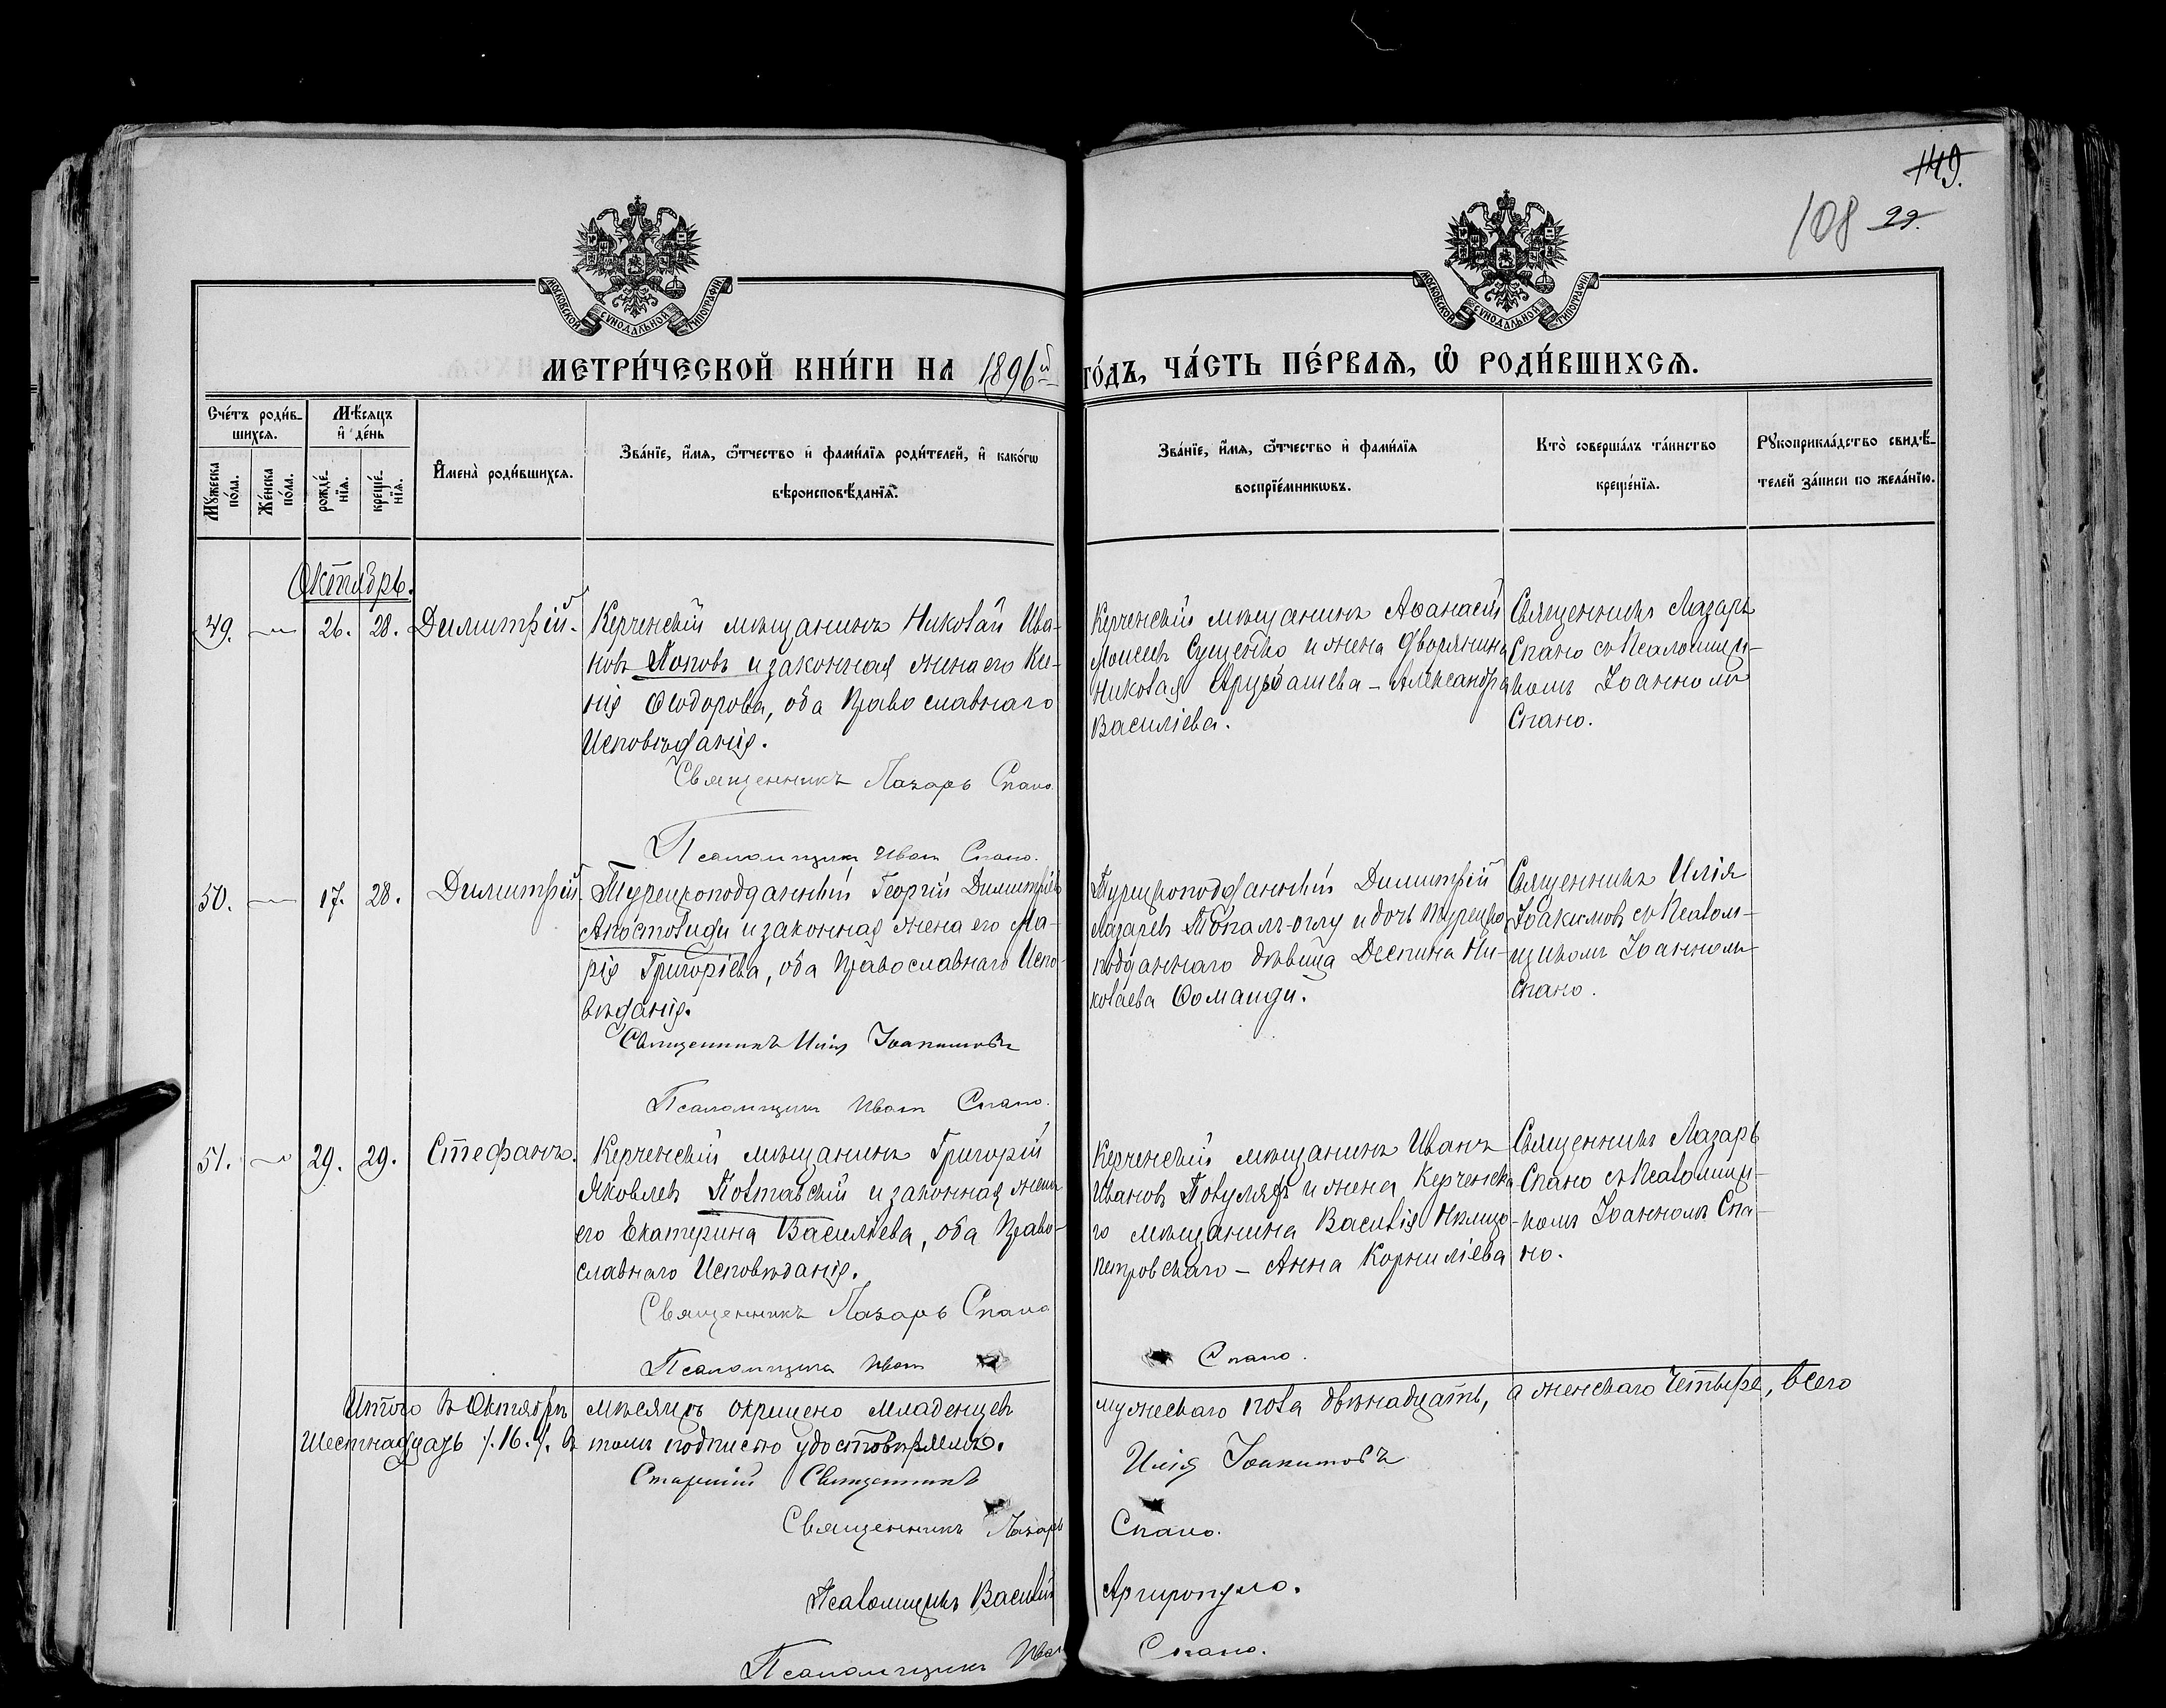 149.
108 29.
МОСКОВСКОЙ СУНОДАЛЬНОЙ ТИПОГРАФІИ
МОСКОВСКОЙ СУНОДАЛЬНОЙ ТИПОГРАФІИ
МЕТРИ́ЧЕСКОЙ КНИ́ГИ НА 1896й
ГО́ДЪ, ЧА́СТЬ ПЕ́РВАЯ, Ѡ РОДИ́ВШИХСЯ.
Сче́тъ роди́в-
шихся.
Мꙋ́жеска
по́ла.
Же́нска
по́ла.
Мѣ́сяцъ
и҆ де́нь
рожде́-
нїя.
креще́-
нїя.
И҆мена̀ роди́вшихся.
Зва́нїе, и҆́мя, ѻ҆́тчество и҆ фами́лїя роди́телей, и҆ како́гѡ
вѣроисповѣ́данїя.
Зва́нїе, и҆́мя, ѻ҆́тчество и҆ фами́лїя
воспрїе́мникѡвъ.
Кто̀ соверша́лъ та́инство
креще́нїя.
Рꙋкоприкла́дство свидѣ́-
телей за́писи по жела́нїю.
Октябрь.
49. — 26. 28. Димитрій.
Керченскій мѣщанинъ Николай Ива-
новъ Поповъ и законная жена его Ки-
нія Ѳеодорова, оба Православнаго
Исповѣданія.
Священникъ Лазарь Спано.
Псаломщикъ Иван Спано.
Керченскій мѣщанинъ Аѳанасій
Моисеевъ и жена дворянина
Николая Арузашева - Александра
Василіева.
Священникъ Лазарь
Спано съ Псаломщи-
комъ Іоанномъ
Спано.
50. — 17. 28. Димитрій.
Турецкоподданный Георгій Димитріевъ
Апостолиди и законная жена его Ма-
рія Григоріева, оба Православнаго Испо-
вѣданія.
Священникъ Илія Іоакимовъ
Псаломщикъ Иван Спано.
Турецкоподданный Димитрій
Лазаревъ Топалъ-оглу и дочь турецко-
подданнаго дѣвица Деспина Ни-
колаева Ѳомаиди.
Священникъ Илія
Іоакимовъ съ Псалом-
щикомъ Іоанномъ
Спано.
51. — 29. 29. Стефанъ.
Керченскій мѣщанинъ Григорій
Яковлевъ Полтавскій и законная жена
его Екатерина Васильева, оба Право-
славнаго Исповѣданія.
Священникъ Лазарь Спано
Псаломщикъ Иван Спано.
Керченскій мѣщанинъ Иванъ
Ивановъ и жена Керченска-
го мѣщанина Василія
петровскаго - Анна Корниліева
Священникъ Лазарь
Спано съ Псаломщи-
комъ Іоанномъ Спа-
но.
Итого въ Октябрѣ мѣсяцѣ окрещено младенцевъ мужескаго пола двѣнадцать, а женскаго четыре, всего
Шестнадцать /.16./. въ томъ подписью удостовѣряемъ.
Старшій Священникъ Илія Іоакимовъ
Священникъ Лазарь Спано.
Псаломщикъ Василій Аргиропуло.
Псаломщикъ Иван Спано.